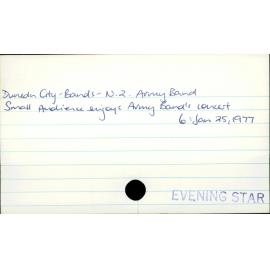 Dunedin City - Bands - N.Z. Army Band
Small Audience enjoys Army Band's concert
6: Jan 25, 1977
EVENING STAR